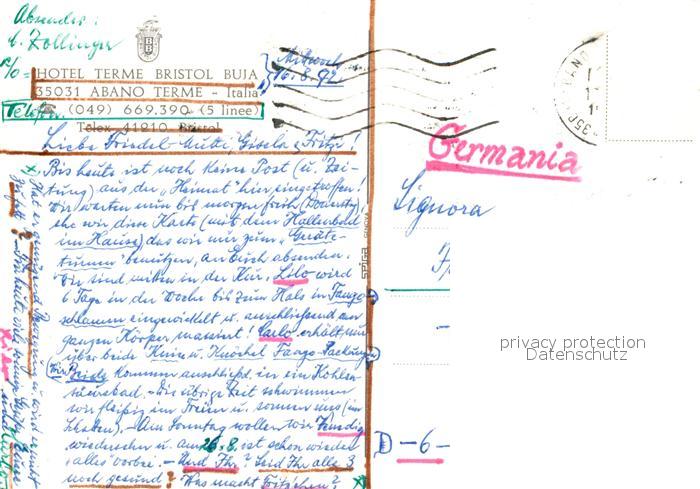 Absender:
C. Zollinger
c/o = HOTEL TERME BRISTOL BUJA
35031 ABANO TERME - Italia
Telefon (049) 669.390 (5 linee)
Telex 41210 Bristol
Mittwoch
16.8.92
Liebe Friedel-Mutti, Gisela u. Fritz!
Bis heute ist noch keine Post (u. Zei-
tung) aus der „Heimat" hier eingetroffen!
Wir warten nun bis morgen früh (Donnerstg)
ehe wir diese Karte (mit dem Hallenbad
im Hause) das wir nur zum „Geräte-
turnen" benutzen, an Euch absenden.
Wir sind mitten in der Kur. Lilo wird
6 Tage in der Woche bis zum Hals in Fango
schlamm eingewickelt u. anschließend am
ganzen Körper massiert! Carlo erhält nur
über beide Knie u. Knöchel Fango-Packung
Wir Beide kommen anschließd. in ein Kohlen-
säurebad. - Die übrige Zeit schwimmen
wir fleißig im Freien u. sonnen uns (im
Schatten). - Am Sonntag wollen wir Venedig
wiedersehen u. am 26.8. ist schon wieder
alles vorbei. - Und Ihr? Seid Ihr alle
noch gesund? Was macht Fritzchen?
Germania
Signora
D - 6 -
privacy protection
Datenschutz